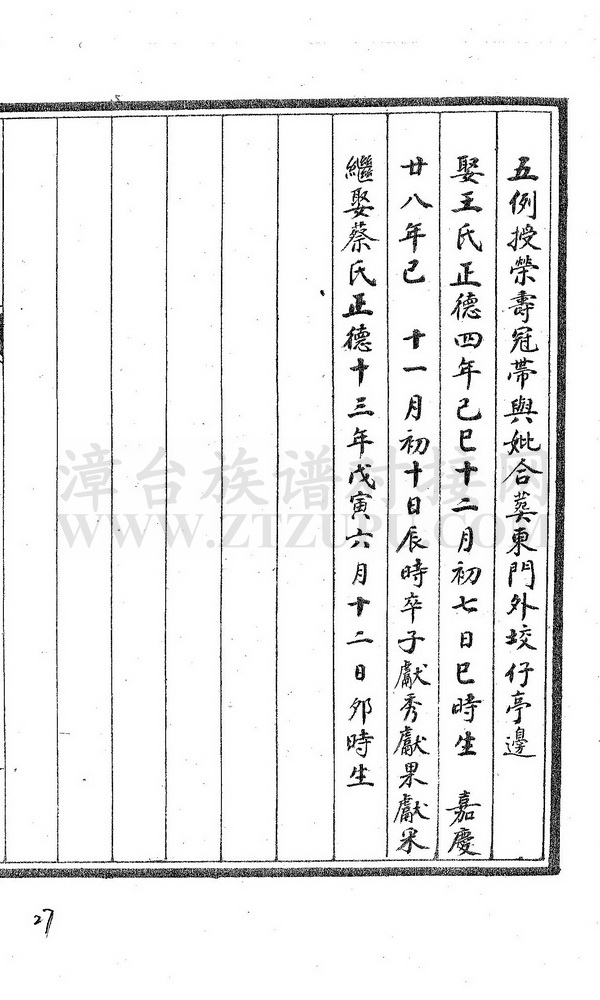 五例授榮壽冠帶與妣合葬東門外坟仔亭邊
娶王氏正德四年己巳十二月初七日巳時生 嘉慶
廿八年己 十一月初十日辰時卒子獻秀獻果獻采
繼娶蔡氏正德十三年戊寅六月十二日夘時生
漳台族谱对接网
WWW.ZTZUPU.COM
27